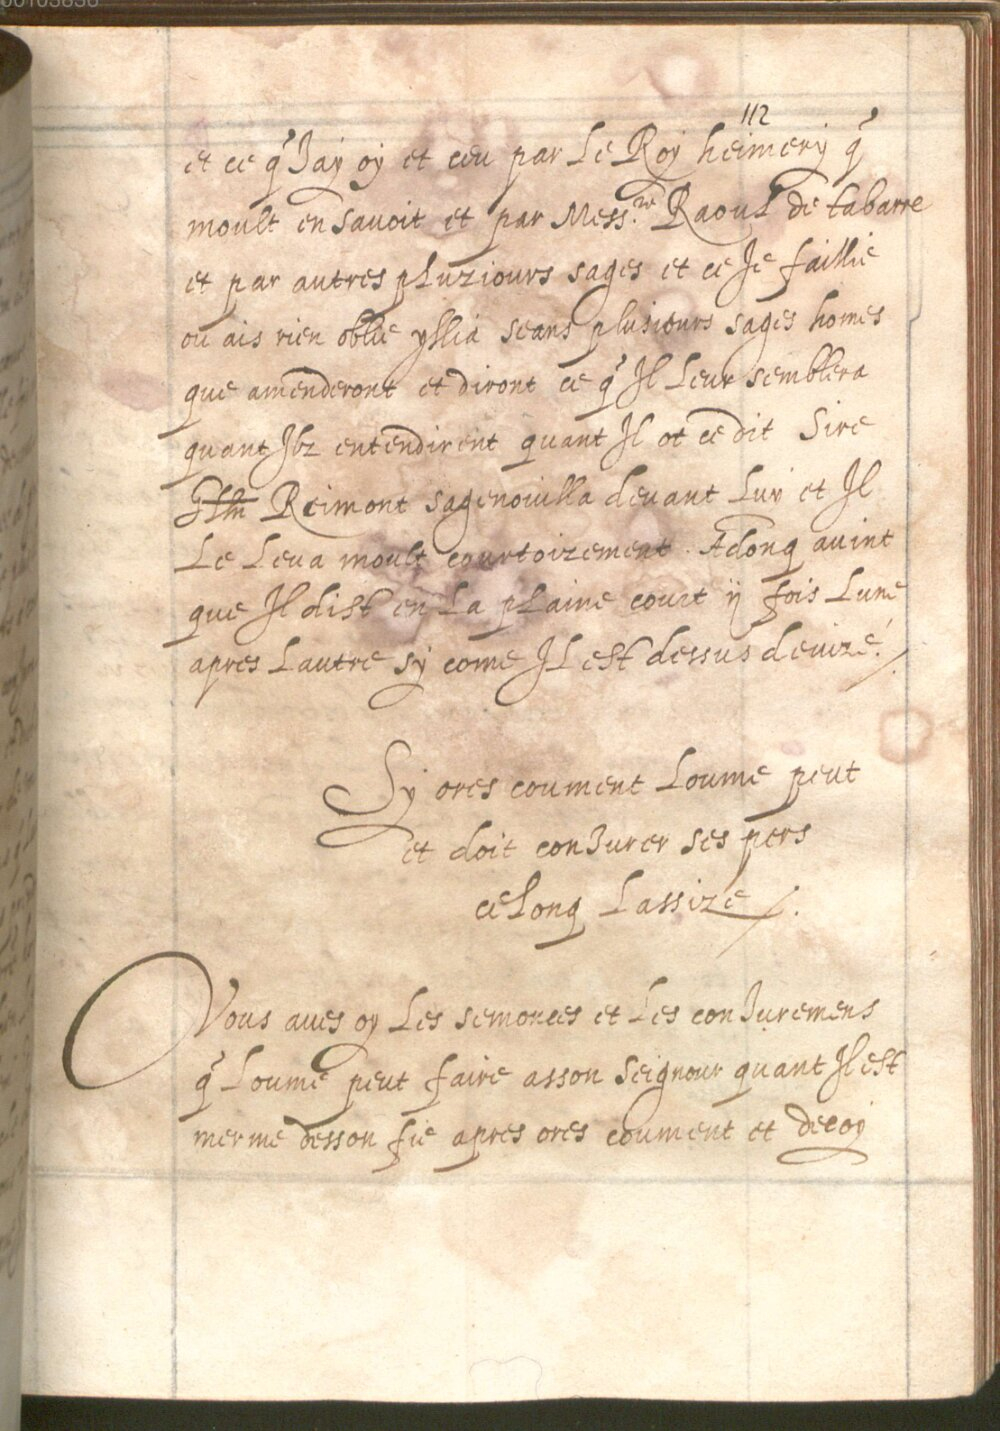 00103836
112
et ce q̃ Jay oy et ceu par Le Roy heimery q̃
moult en savoit et par Mess.re Raoul de tabarre
et par autres pluziours sages et ce Je faillie
ou ais rien oblie yllia seans plusiours sages homes
que amenderont et diront ce q̃ Il Leur semblera
quant Ilz entendirent quant Il ot ce dit Sire
Reimont sagenouilla devant Luy et Il
Le Leva moult courtoizement . Adonq avint
que Il dist en La plaine court ij fois Lune
apres Lautre sy come Il est dessus devizé ./
Sy ores coument Loume peut
et doit conJurer ses pers
celonq Lassize ./.
Vous aves oy Les semonces et Les conJuremens
q̃ Loume peut faire asson seignour quant Il est
merme desson fie apres ores coument et decoy